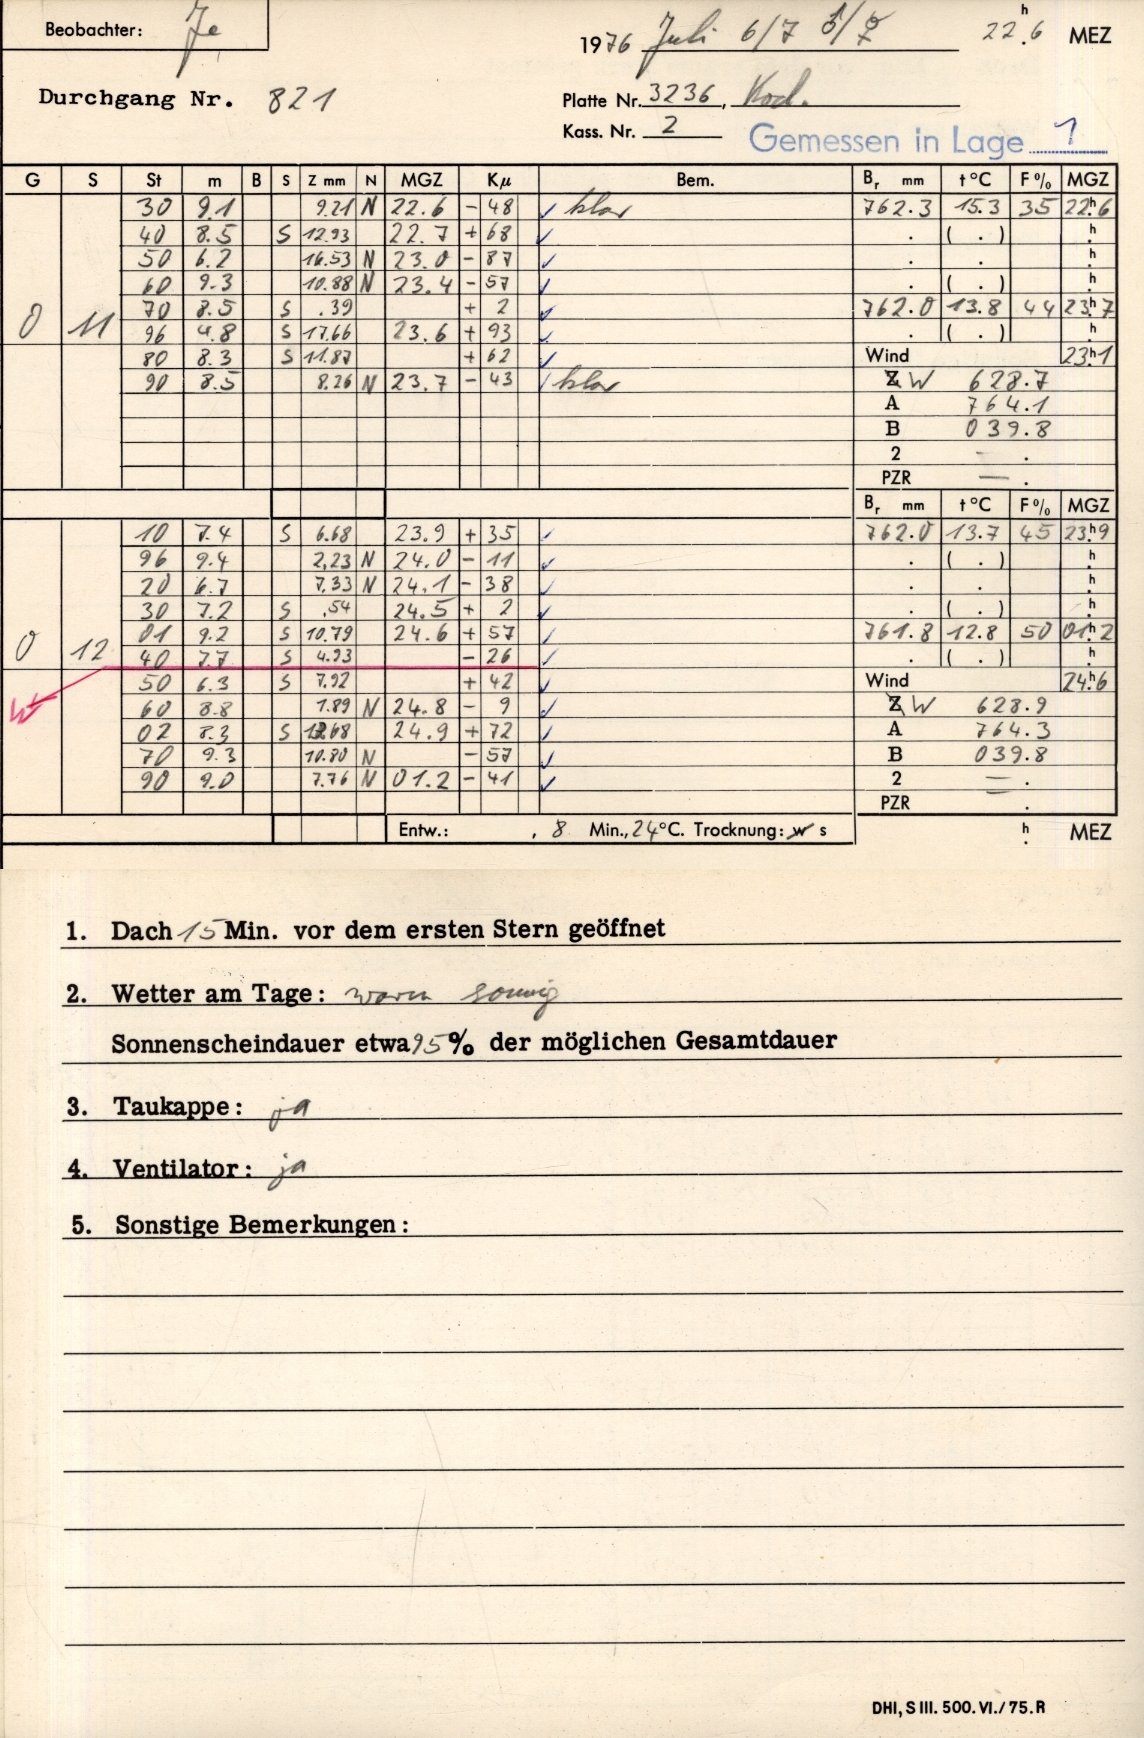 Beobachter: Je
1976 Juli 6/7 ♂/☿ 22h.6 MEZ
Durchgang Nr. 821
Platte Nr. 3236, Kod.
Kass. Nr. 2 Gemessen in Lage 1
G S St m B S Z mm N MGZ Kμ Bem. Br mm t°C F% MGZ
30 9.1 9.21 N 22.6 - 48 ✓ klar 762.3 15.3 35 22h.6
40 8.5 S 12.93 22.7 + 68 ✓ . ( . ) h.
50 6.2 16.53 N 23.0 - 87 ✓ . . h.
60 9.3 10.88 N 23.4 - 57 ✓ . ( . ) h.
70 8.5 S .39 + 2 ✓ 762.0 13.8 44 23h.7
0 11 96 4.8 S 17.66 23.6 + 93 ✓ . ( . ) h.
80 8.3 S 11.87 + 62 ✓ Wind 23h.1
90 8.5 8.26 N 23.7 - 43 ✓ klar Z W 628.7
A 764.1
B 039.8
2 - .
PZR — .
Br mm t°C F% MGZ
10 7.4 S 6.68 23.9 + 35 ✓ 762.0 13.7 45 23h.9
96 9.4 2,23 N 24.0 - 11 ✓ . ( . ) h.
20 6.7 7.33 N 24.1 - 38 ✓ . . h.
30 7.2 S .54 24.5 + 2 ✓ . ( . ) h.
01 9.2 S 10.79 24.6 + 57 ✓ 761.8 12.8 50 01h.2
0 12 40 7.7 S 4.93 - 26 ✓ . ( . ) h.
50 6.3 S 7.92 + 42 ✓ Wind 24h.6
W 60 8.8 1.89 N 24.8 - 9 ✓ Z W 628.9
02 8.3 S 24.9 + 72 ✓ A 764.3
70 9.3 10.80 N - 57 ✓ B 039.8
90 9.0 7.76 N 01.2 - 41 ✓ 2 — .
PZR .
Entw.: , 8 Min., 24°C. Trocknung: w s h. MEZ
1. Dach 15 Min. vor dem ersten Stern geöffnet
2. Wetter am Tage: warm sonnig
Sonnenscheindauer etwa 95% der möglichen Gesamtdauer
3. Taukappe: ja
4. Ventilator: ja
5. Sonstige Bemerkungen:
DHI, S III. 500. VI./75. R